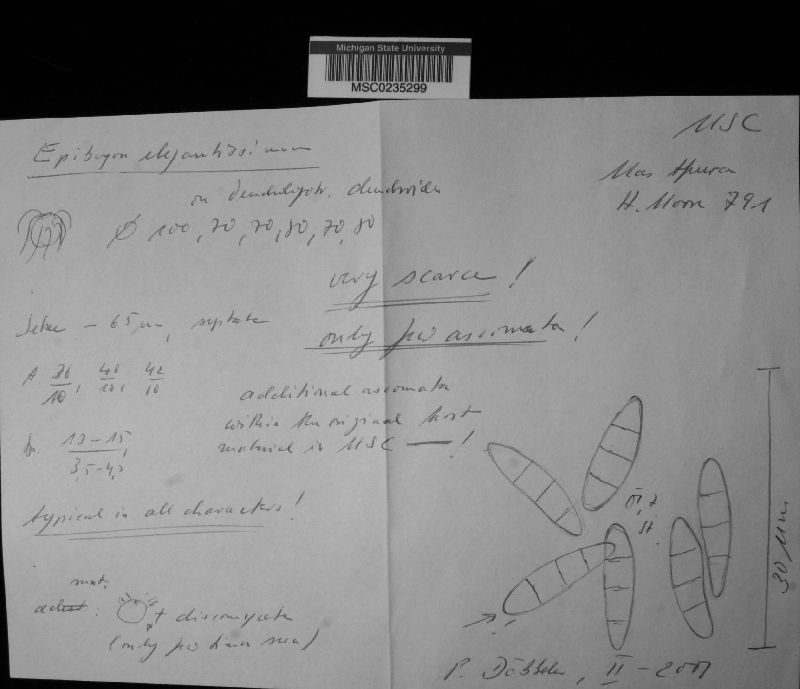 Michigan State University
MSC0235299
MSC
Epibryon elegantissimum
on dendroides
H. Moore 791
Ø 100, 70, 70, 80, 70, 80
very scarce !
Setae - 65 µm, septate
only few ascomata !
A 36/10, 40/10, 42/10
additional ascomata
within the original host
material in MSC — !
13-15
3,5-4,2
typical in all characters !
30 µm
+ discomycete
(only few times seen)
P. Döbbeler, II - 2001